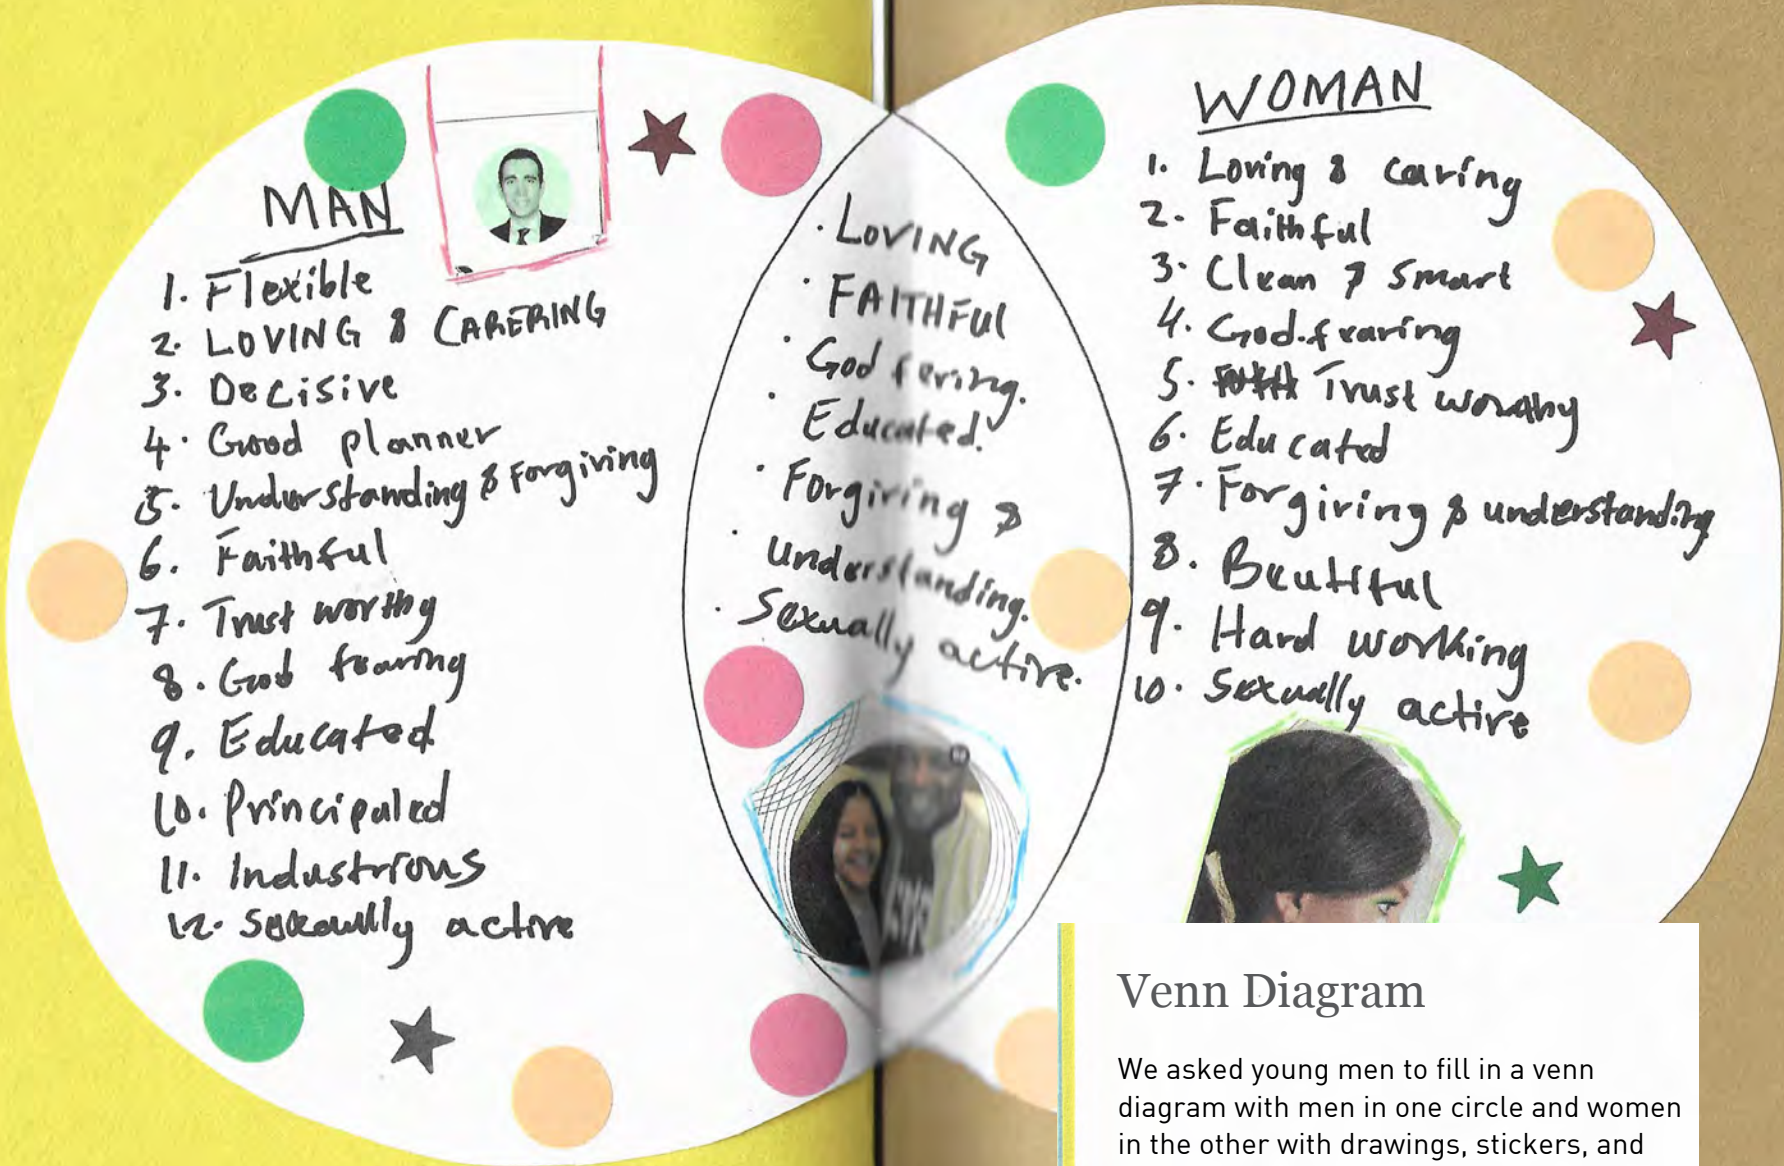 MAN
1. Flexible
2. LOVING & CARERING
3. Decisive
4. Good planner
5. Understanding & Forgiving
6. Faithful
7. Trust worthy
8. God fearing
9. Educated
10. Principaled
11. Industrious
12. Sexually active
· LOVING
· FAITHFUL
· God fering.
· Educated.
· Forgiving &
· understanding.
· Sexually active.
WOMAN
1. Loving & caring
2. Faithful
3. Clean & smart
4. God.fearing
5. Trust worthy
6. Educated
7. Forgiving & understanding
8. Beautiful
9. Hard working
10. Sexually active
Venn Diagram
We asked young men to fill in a venn
diagram with men in one circle and women
in the other with drawings, stickers, and